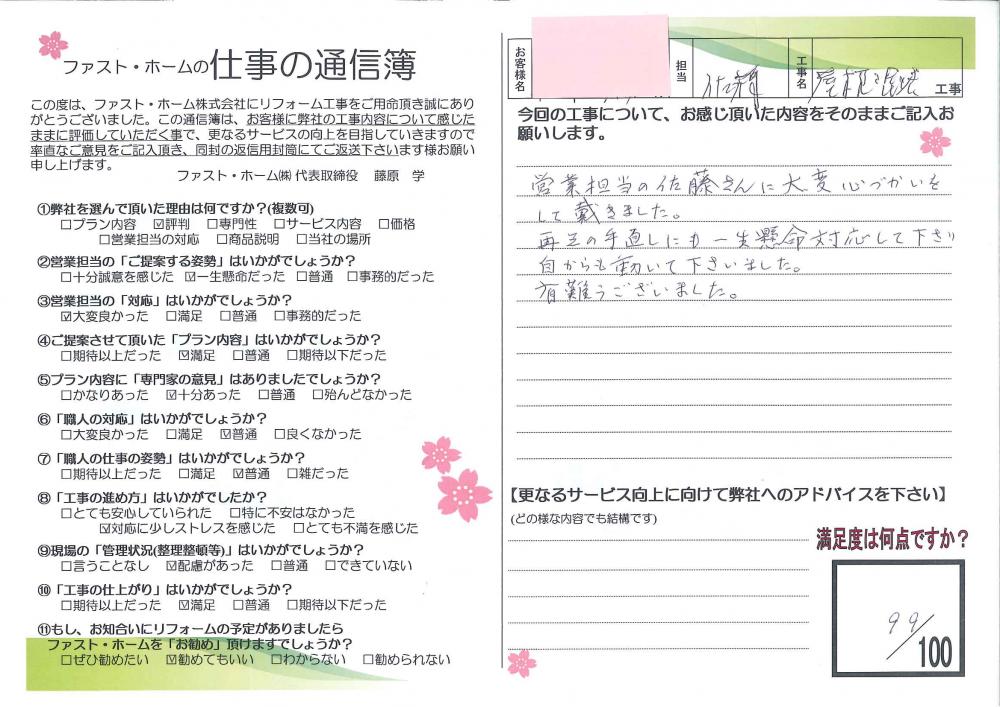 ファスト・ホームの仕事の通信簿
この度は、ファスト・ホーム株式会社にリフォーム工事をご用命頂き誠にあり
がとうございました。この通信簿は、お客様に弊社の工事内容について感じた
ままに評価していただく事で、更なるサービスの向上を目指していきますので
率直なご意見をご記入頂き、同封の返信用封筒にてご返送下さいます様お願い
申し上げます。
ファスト・ホーム㈱ 代表取締役 藤原 学
①弊社を選んで頂いた理由は何ですか？(複数可)
□プラン内容 ☑評判 □専門性 □サービス内容 □価格
□営業担当の対応 □商品説明 □当社の場所
②営業担当の「ご提案する姿勢」はいかがでしょうか？
□十分誠意を感じた ☑一生懸命だった □普通 □事務的だった
③営業担当の「対応」はいかがでしょうか？
☑大変良かった □満足 □普通 □事務的だった
④ご提案させて頂いた「プラン内容」はいかがでしょうか？
□期待以上だった ☑満足 □普通 □期待以下だった
⑤プラン内容に「専門家の意見」はありましたでしょうか？
□かなりあった ☑十分あった □普通 □殆んどなかった
⑥「職人の対応」はいかがでしょうか？
□大変良かった □満足 ☑普通 □良くなかった
⑦「職人の仕事の姿勢」はいかがでしょうか？
□期待以上だった □満足 ☑普通 □雑だった
⑧「工事の進め方」はいかがでしたか？
□とても安心していられた □特に不安はなかった
☑対応に少しストレスを感じた □とても不満を感じた
⑨現場の「管理状況(整理整頓等)」はいかがでしょうか？
□言うことなし ☑配慮があった □普通 □できていない
⑩「工事の仕上がり」はいかがでしょうか？
□期待以上だった ☑満足 □普通 □期待以下だった
⑪もし、お知合いにリフォームの予定がありましたら
ファスト・ホームを「お勧め」頂けますでしょうか？
□ぜひ勧めたい ☑勧めてもいい □わからない □勧められない
お客様名
担当 佐藤
工事名 工事
今回の工事について、お感じ頂いた内容をそのままご記入お
願いします。
営業担当の佐藤さんに大変心づかいを
して戴きました。
再足の手直しにも一生懸命対応して下さり
自からも動いて下さいました。
有難うございました。
【更なるサービス向上に向けて弊社へのアドバイスを下さい】
(どの様な内容でも結構です)
満足度は何点ですか？
99/100